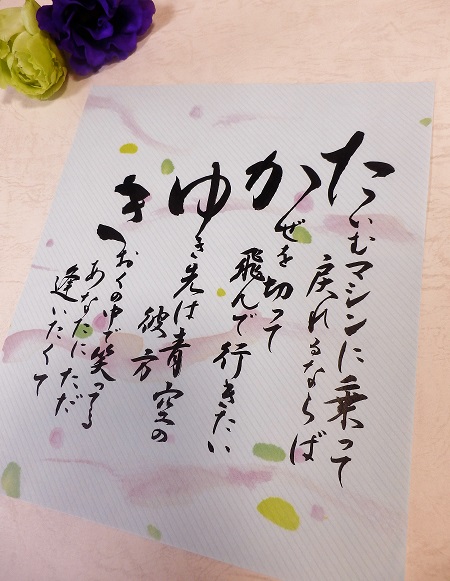 たいむマシンに乗って
戻れるならば
かぜを切って
飛んで行きたい
ゆき先は青空の
彼方
きおくの中で笑ってる
あなたに ただ
逢いたくて